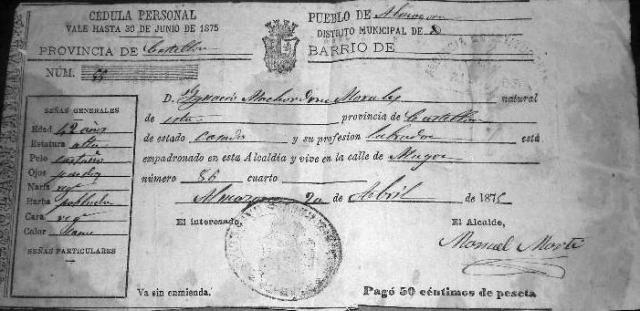 CÉDULA PERSONAL
VALE HASTA 30 DE JUNIO DE 1875
PROVINCIA DE Castellon
NÚM.
PUEBLO DE Almazora
DISTRITO MUNICIPAL DE
BARRIO DE
SEÑAS GENERALES
Edad 42 años
Estatura alta
Pelo castaño
Ojos pardos
Nariz reg
Barba poblada
Cara reg
Color sano
SEÑAS PARTICULARES
D. Ygnacio Morales natural
de esta provincia de Castellon
de estado casado y su profesion labrador está
empadronado en esta Alcaldía y vive en la calle de Mayor
número 86 cuarto
Almazora 20 de Abril de 1875
El interesado,
El Alcalde,
Manuel
Va sin enmienda.
Pagó 50 céntimos de peseta